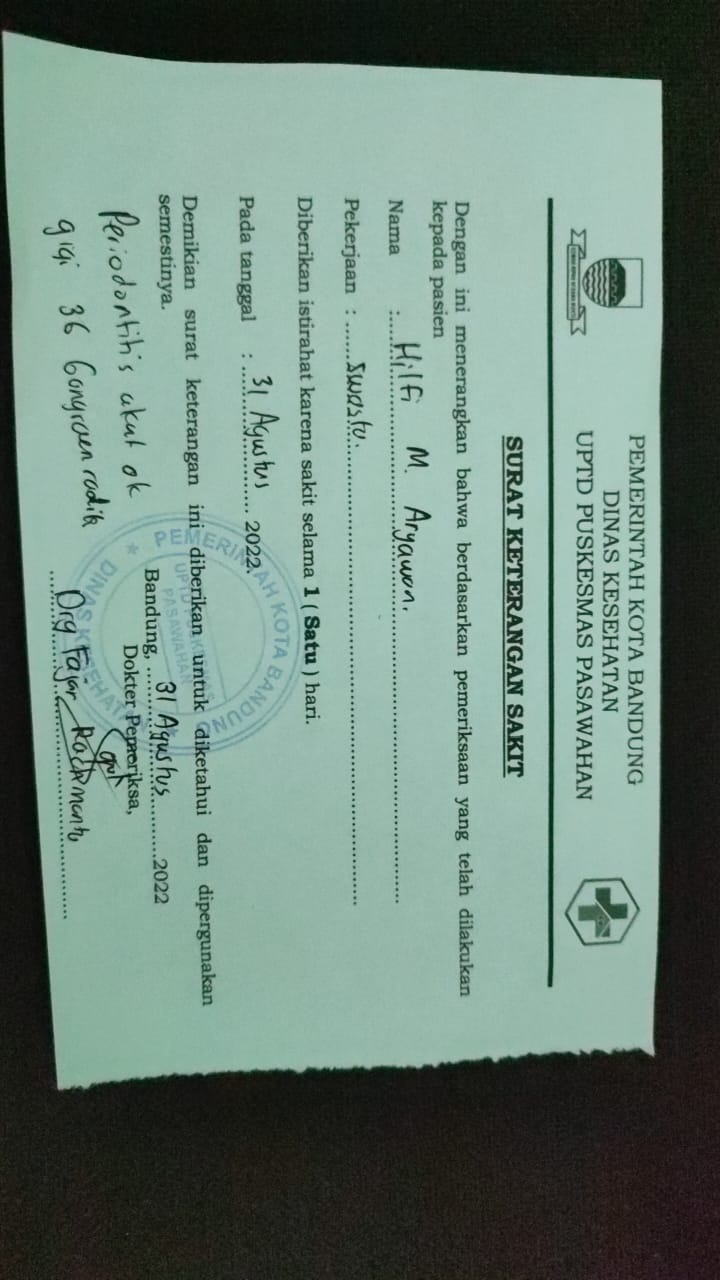 PEMERINTAH KOTA BANDUNG
DINAS KESEHATAN
UPTD PUSKESMAS PASAWAHAN
SURAT KETERANGAN SAKIT
Dengan ini menerangkan bahwa berdasarkan pemeriksaan yang telah dilakukan
kepada pasien
Nama : Hilfi M. Aryawan.
Pekerjaan : Swasta.
Diberikan istirahat karena sakit selama 1 ( Satu ) hari.
Pada tanggal : 31 Agustus 2022.
Demikian surat keterangan ini diberikan untuk diketahui dan dipergunakan
semestinya.
Bandung, 31 Agustus 2022
Dokter Pemeriksa,
Periodontitis akut ok
gigi 36 Gangraen radik
Drg Fajar Rachmanto
PEMERINTAH KOTA BANDUNG
UPTD PUSKESMAS
PASAWAHAN
DINAS KESEHATAN